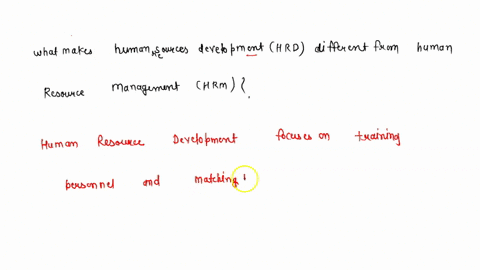 what makes human resources development (HRD) different from human
Resource Management (HRM) ?
Human Resource Development focuses on training
personnel and matching